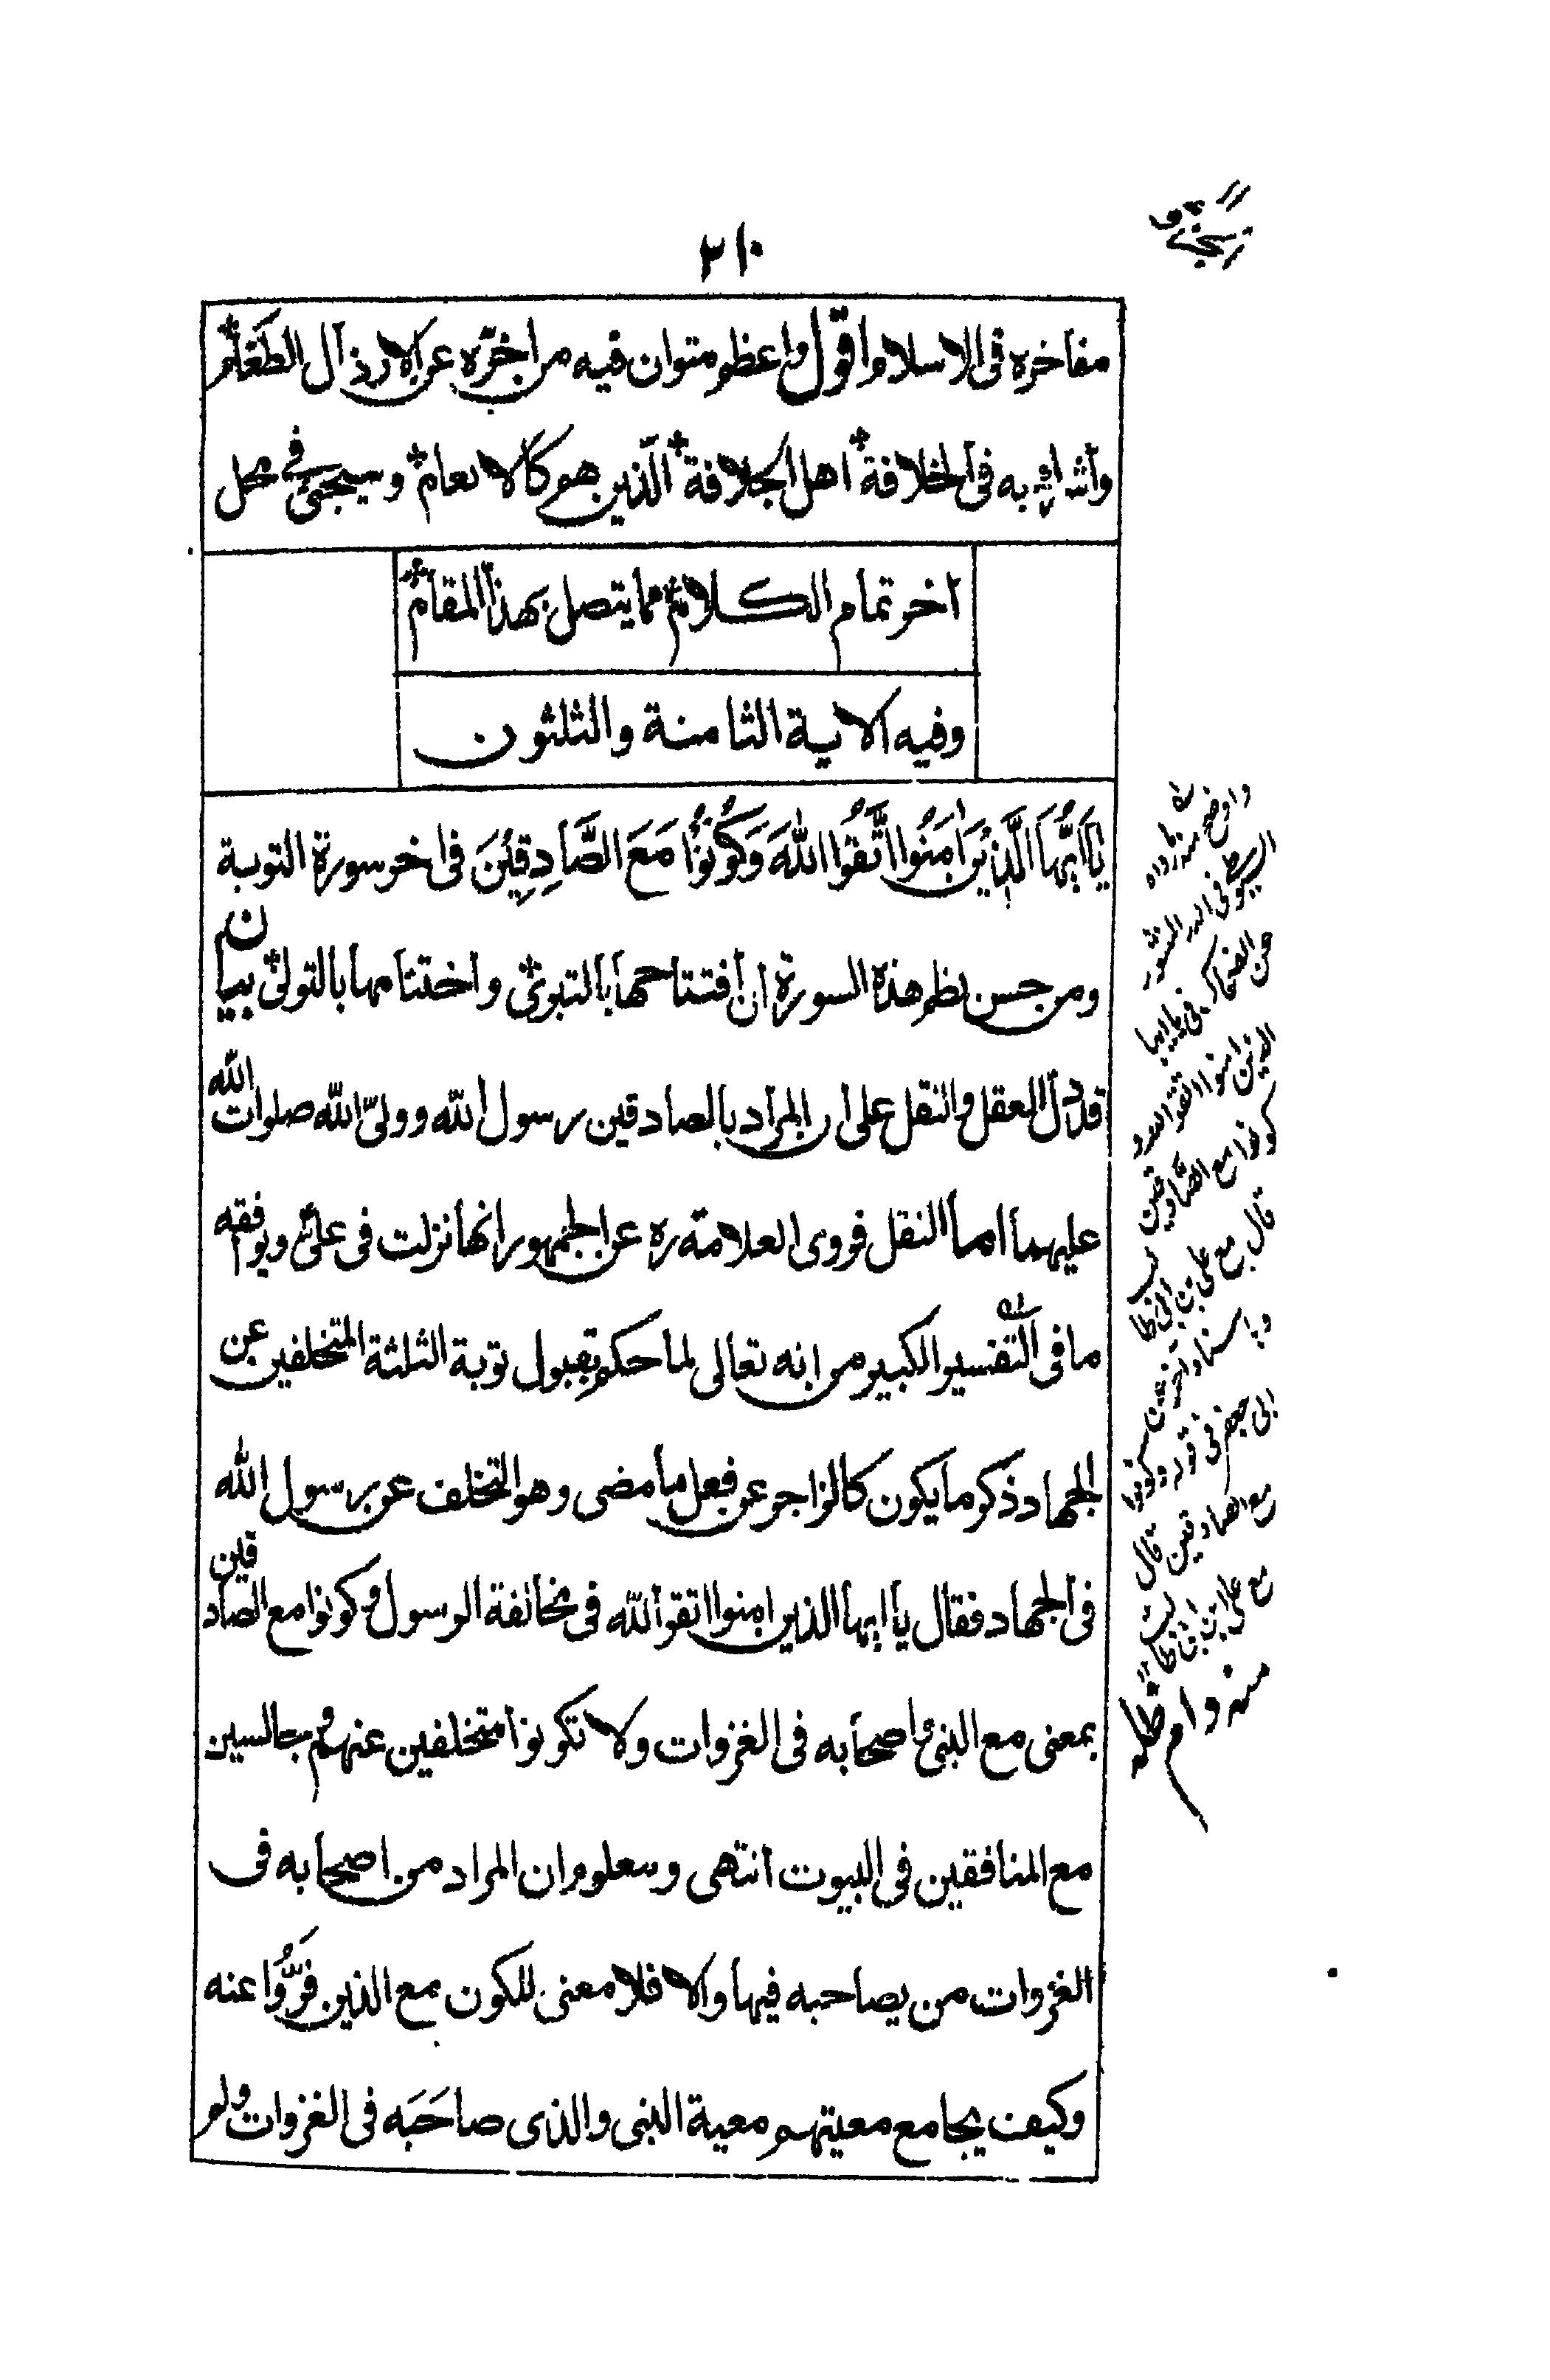 ٣١٠
مفاخره فى الاسلام اقول واعظم متوان فيه من اخره عن الارذال الطغام
واشد به فى الخلافة اهل الجلافة الذين هم كالانعام وسيجئ فى محل
اخر تمام الكلام مما يتصل بهذا المقام
وفيه الاية الثامنة والثلثون
يَا اَيُّهَا الَّذِيْنَ اٰمَنُوا اتَّقُوا اللهَ وَكُوْنُوْا مَعَ الصَّادِقِيْنَ فى اخر سورة التوبة
ومن حسن نظم هذه السورة ان افتتاحها بالتبرئ واختتامها بالتولى بيان
قد دل العقل والنقل على ان المراد بالصادقين رسول الله وولىّ الله صلوات الله
عليهما اما النقل فروى العلامة ره عن الجمهور انها نزلت فى على ويوافقه
ما فى التفسير الكبير من انه تعالى لما حكم بقبول توبة الثلثة المتخلفين عن
الجهاد ذكر ما يكون كالزاجر عن فعل ما مضى وهو التخلف عن رسول الله
فى الجهاد فقال يا ايها الذين امنوا اتقوا الله فى مخالفة الرسول وكونوا مع الصادقين
بمعنى مع النبى واصحابه فى الغزوات ولا تكونوا متخلفين عنهم وجالسين
مع المنافقين فى البيوت انتهى ومعلوم ان المراد من اصحابه فى
الغزوات من يصاحبه فيها والا فلا معنى للكون مع الذين فَرُّوا عنه
وكيف يجامع معيتهم معية النبى والذى صاحَبَه فى الغزوات ولو
واوضح منه رواه
السيوطى فى الدر المنثور
عن الضحاك فى يا ايها
الذين امنوا اتقوا الله و
كونوا مع الصادقين
قال مع على بن ابى طالب
و
ابى جعفر فى قوله وكونوا
مع الصادقين قال
مع على بن ابى طالب
منه دام ظله